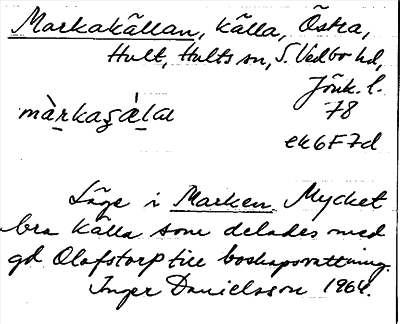 Markakällan, källa, Östra,
Hult, Hults sn, S. Vedbo hd,
Jönk. l.
78
ek6F7d
Läge i Marken. Mycket
bra källa som delades med
gd Olofstorp till boskapsvattning.
Inger Danielsson 1964.